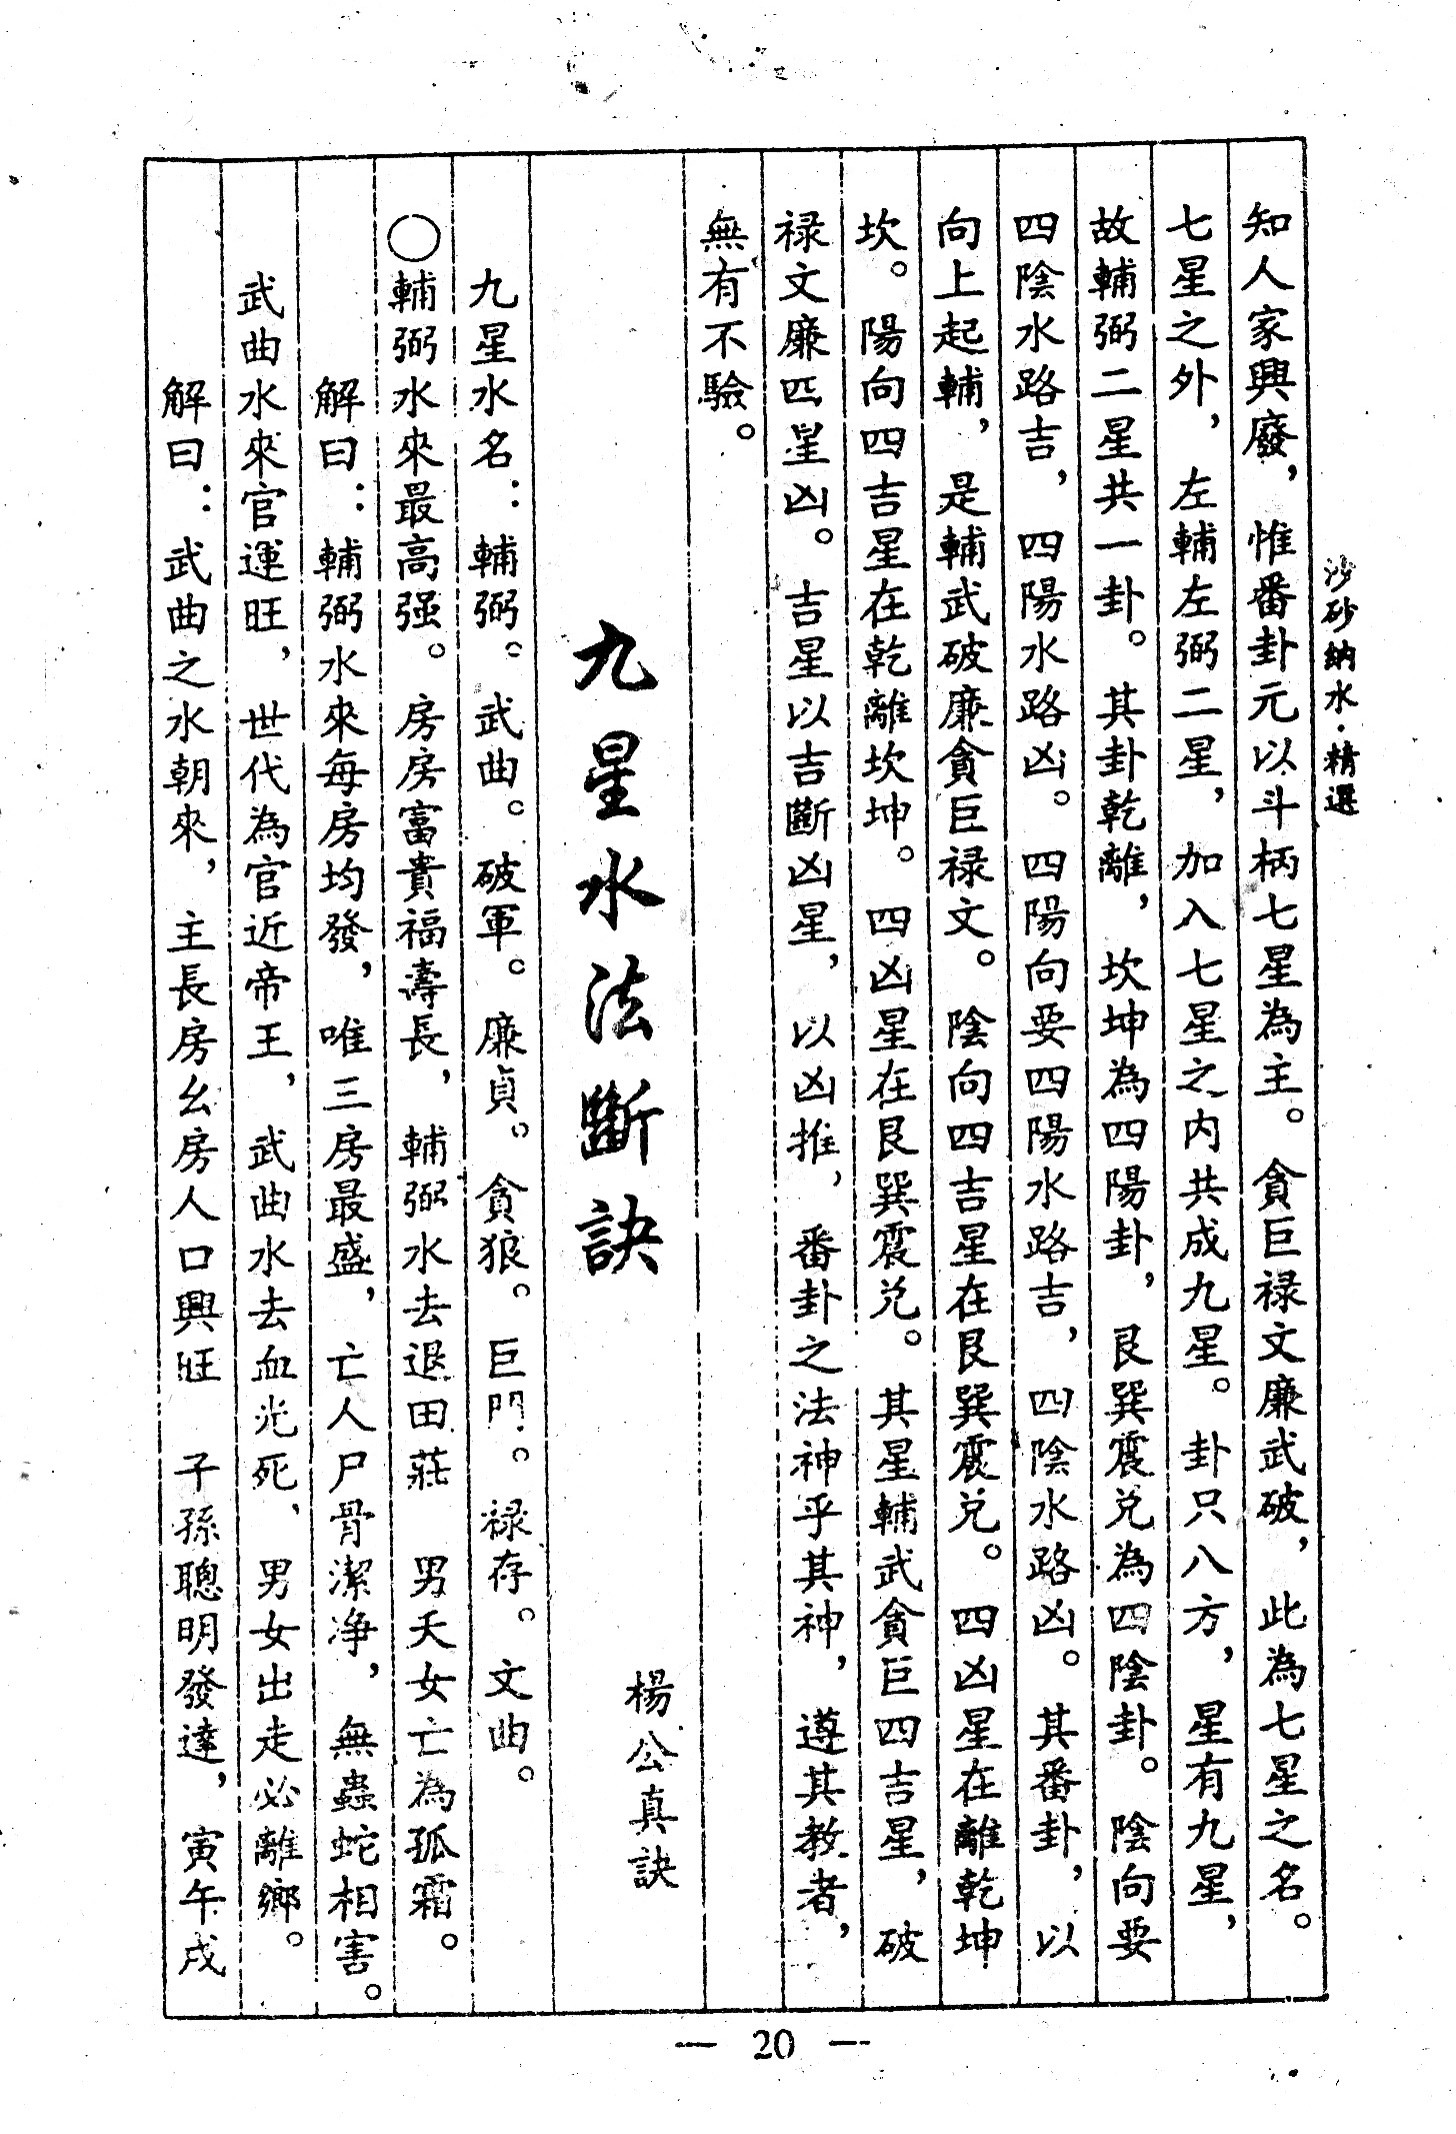 沙砂納水·精選
知人家興廢，惟番卦元以斗柄七星為主。貪巨禄文廉武破，此為七星之名。
七星之外，左輔左弼二星，加入七星之内共成九星。卦只八方，星有九星，
故輔弼二星共一卦。其卦乾離，坎坤為四陽卦，艮巽震兑為四陰卦。陰向要
四陰水路吉，四陽水路凶。四陽向要四陽水路吉，四陰水路凶。其番卦，以
向上起輔，是輔武破廉貪巨禄文。陰向四吉星在艮巽震兑。四凶星在離乾坤
坎。陽向四吉星在乾離坎坤。四凶星在艮巽震兑。其星輔武貪巨四吉星，破
禄文廉四星凶。吉星以吉斷凶星，以凶推，番卦之法神乎其神，遵其教者，
無有不驗。
九星水法斷訣
楊公真訣
九星水名：輔弼。武曲。破軍。廉貞。貪狼。巨門。禄存。文曲。
○輔弼水來最高强。房房富貴福壽長，輔弼水去退田莊 男夭女亡為孤霜。
解曰：輔弼水來每房均發，唯三房最盛，亡人尸骨潔净，無蟲蛇相害。
武曲水來官運旺，世代為官近帝王，武曲水去血光死，男女出走必離鄉。
解曰：武曲之水朝來，主長房幺房人口興旺 子孫聰明發達，寅午戌
— 20 —